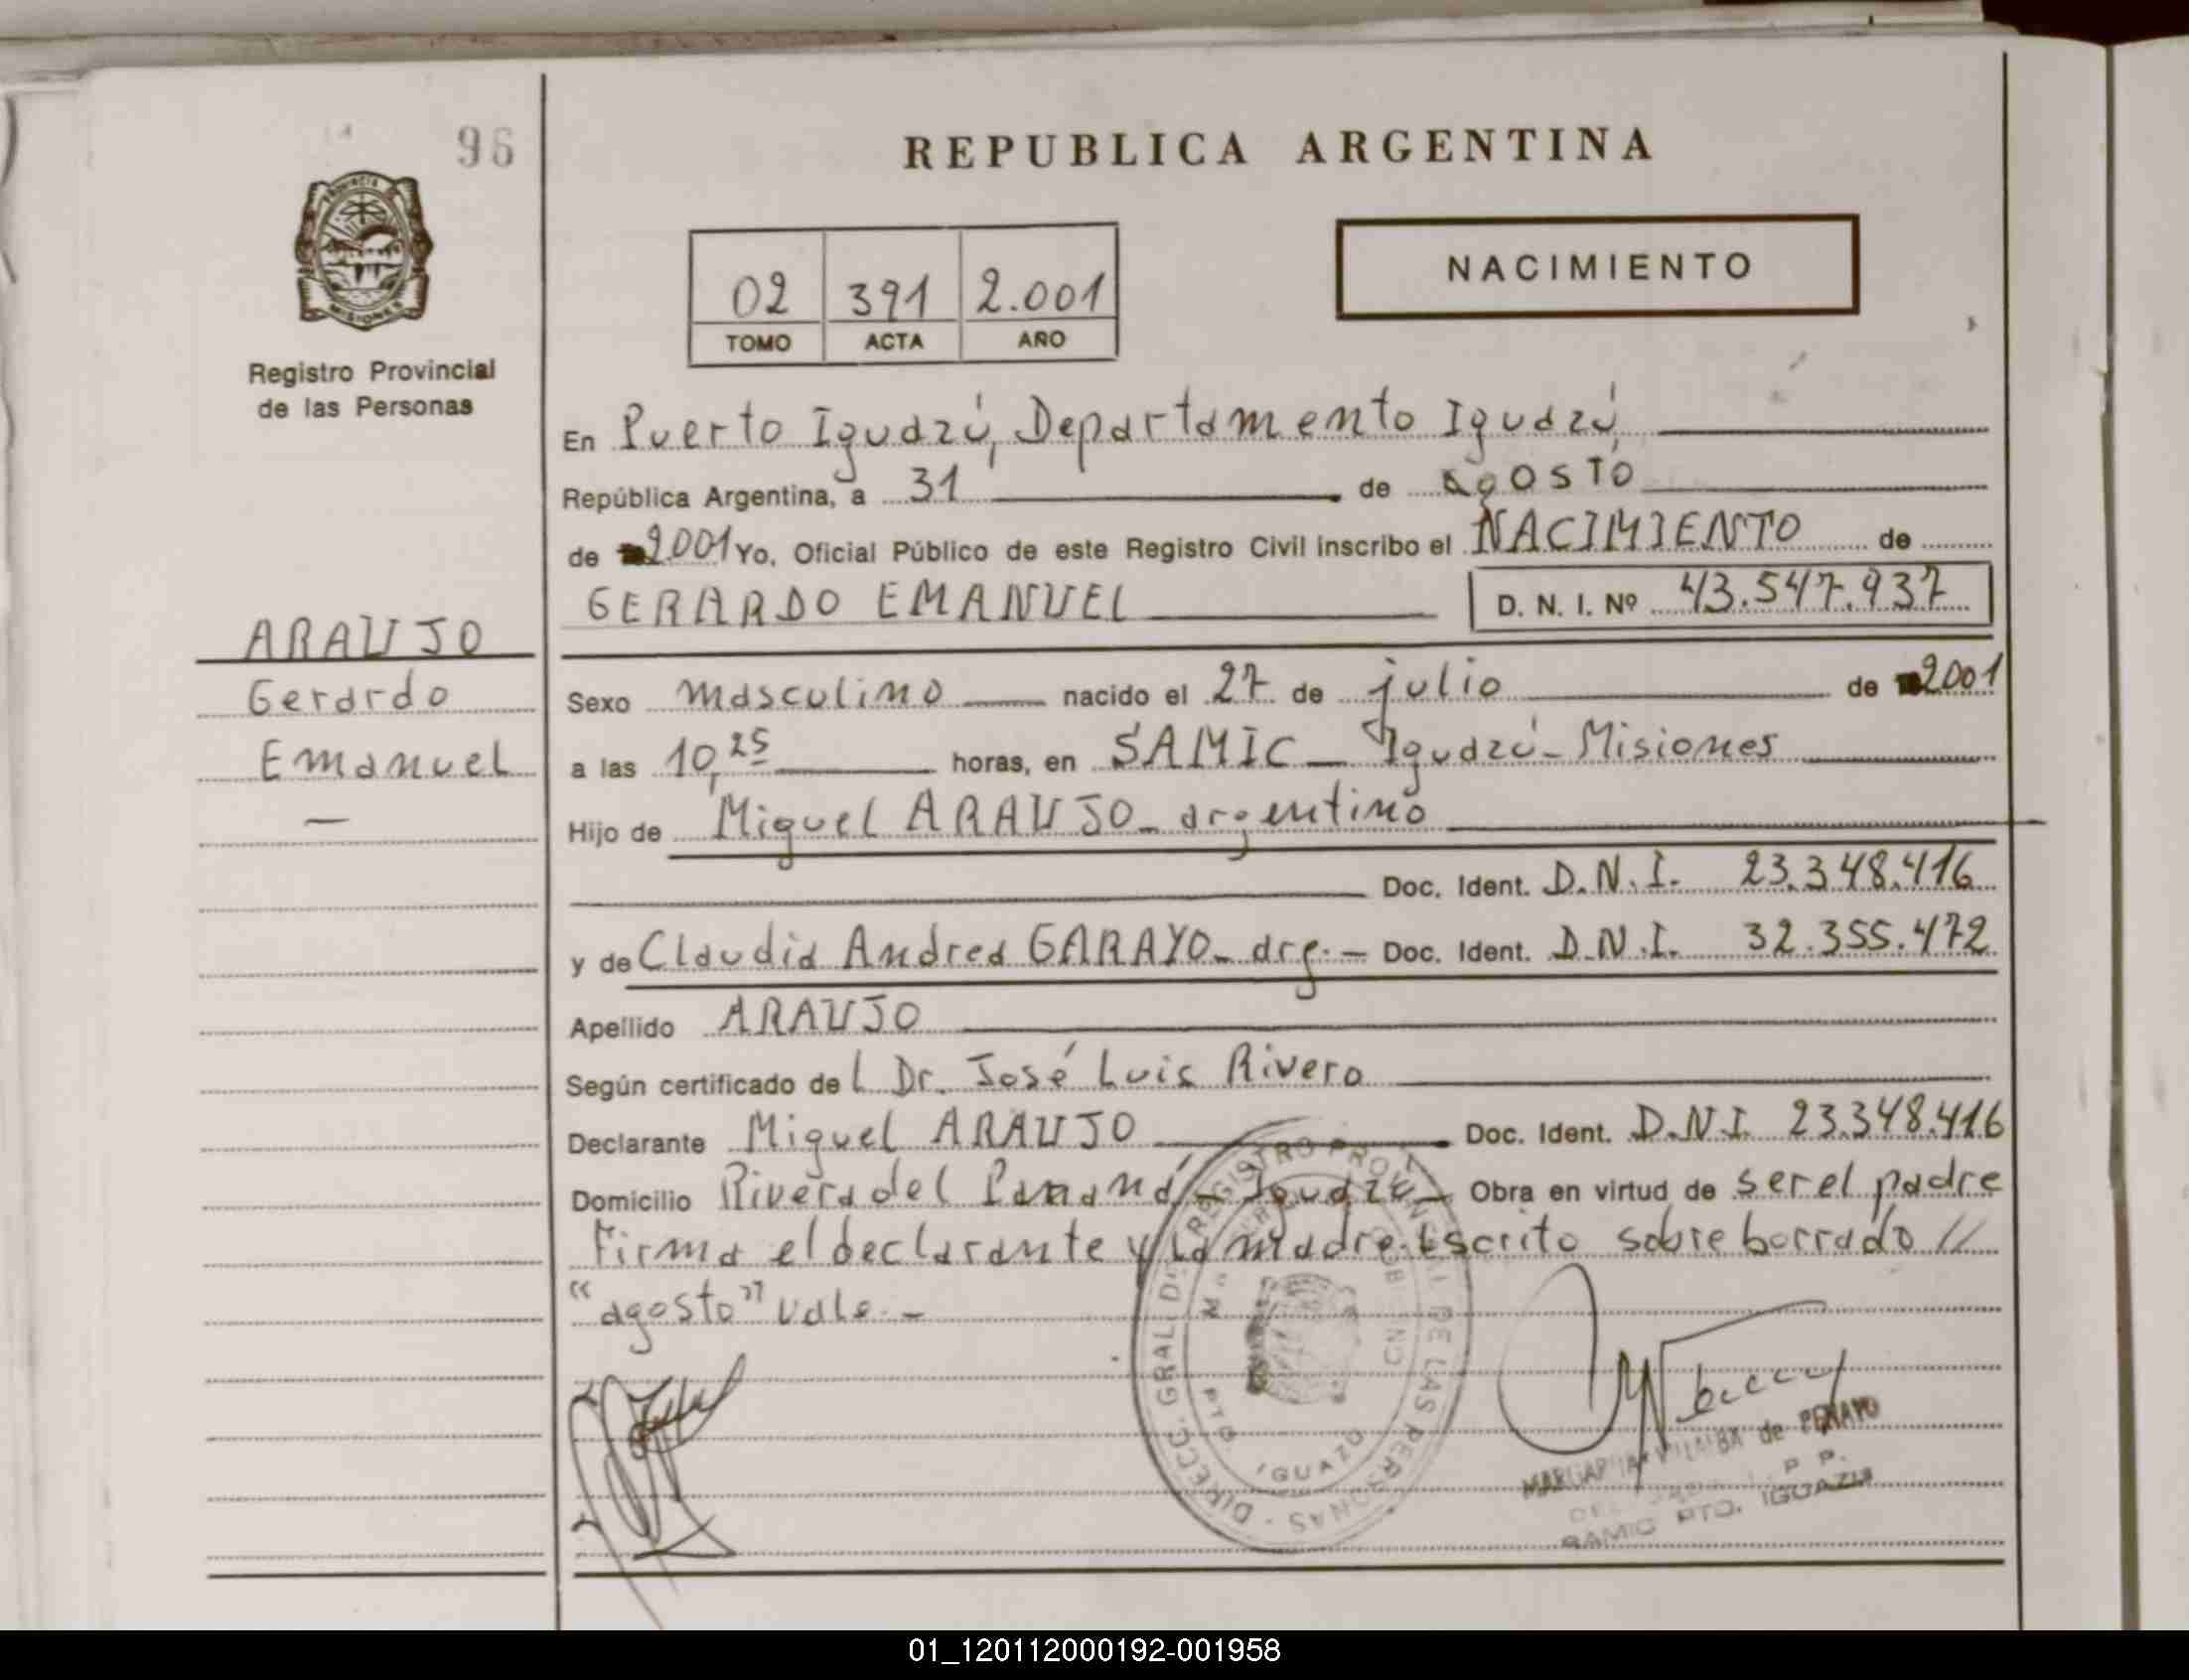 96
REPUBLICA ARGENTINA
PROVINCIA DE
MISIONES
Registro Provincial
de las Personas
02 391 2.001
TOMO ACTA AÑO
NACIMIENTO
En Puerto Iguazú, Departamento Iguazú
República Argentina, a 31 de agosto
de 2001 Yo, Oficial Público de este Registro Civil inscribo el NACIMIENTO de
GERARDO EMANUEL D. N. I. Nº 43.547.937
ARAUJO
Gerardo
Emanuel
Sexo masculino nacido el 27 de julio de 2001
a las 10,25 horas, en SAMIC - Iguazú - Misiones
Hijo de Miguel ARAUJO - argentino
Doc. Ident. D.N.I. 23.348.416
y de Claudia Andrea GARAYO - arg. - Doc. Ident. D.N.I. 32.355.472
Apellido ARAUJO
Según certificado del Dr. José Luis Rivero
Declarante Miguel ARAUJO Doc. Ident. D.N.I. 23.348.416
Domicilio Rivera del Paraná - Iguazú - Obra en virtud de ser el padre
Firma el declarante y la madre. Escrito sobre borrado //
"agosto" vale. -
DIRECC. GRAL. DEL REGISTRO PROVINCIAL DE LAS PERSONAS
PTO IGUAZU
MARGARITA VILALBA de PENAYO
SAMIC PTO. IGUAZU
01_120112000192-001958